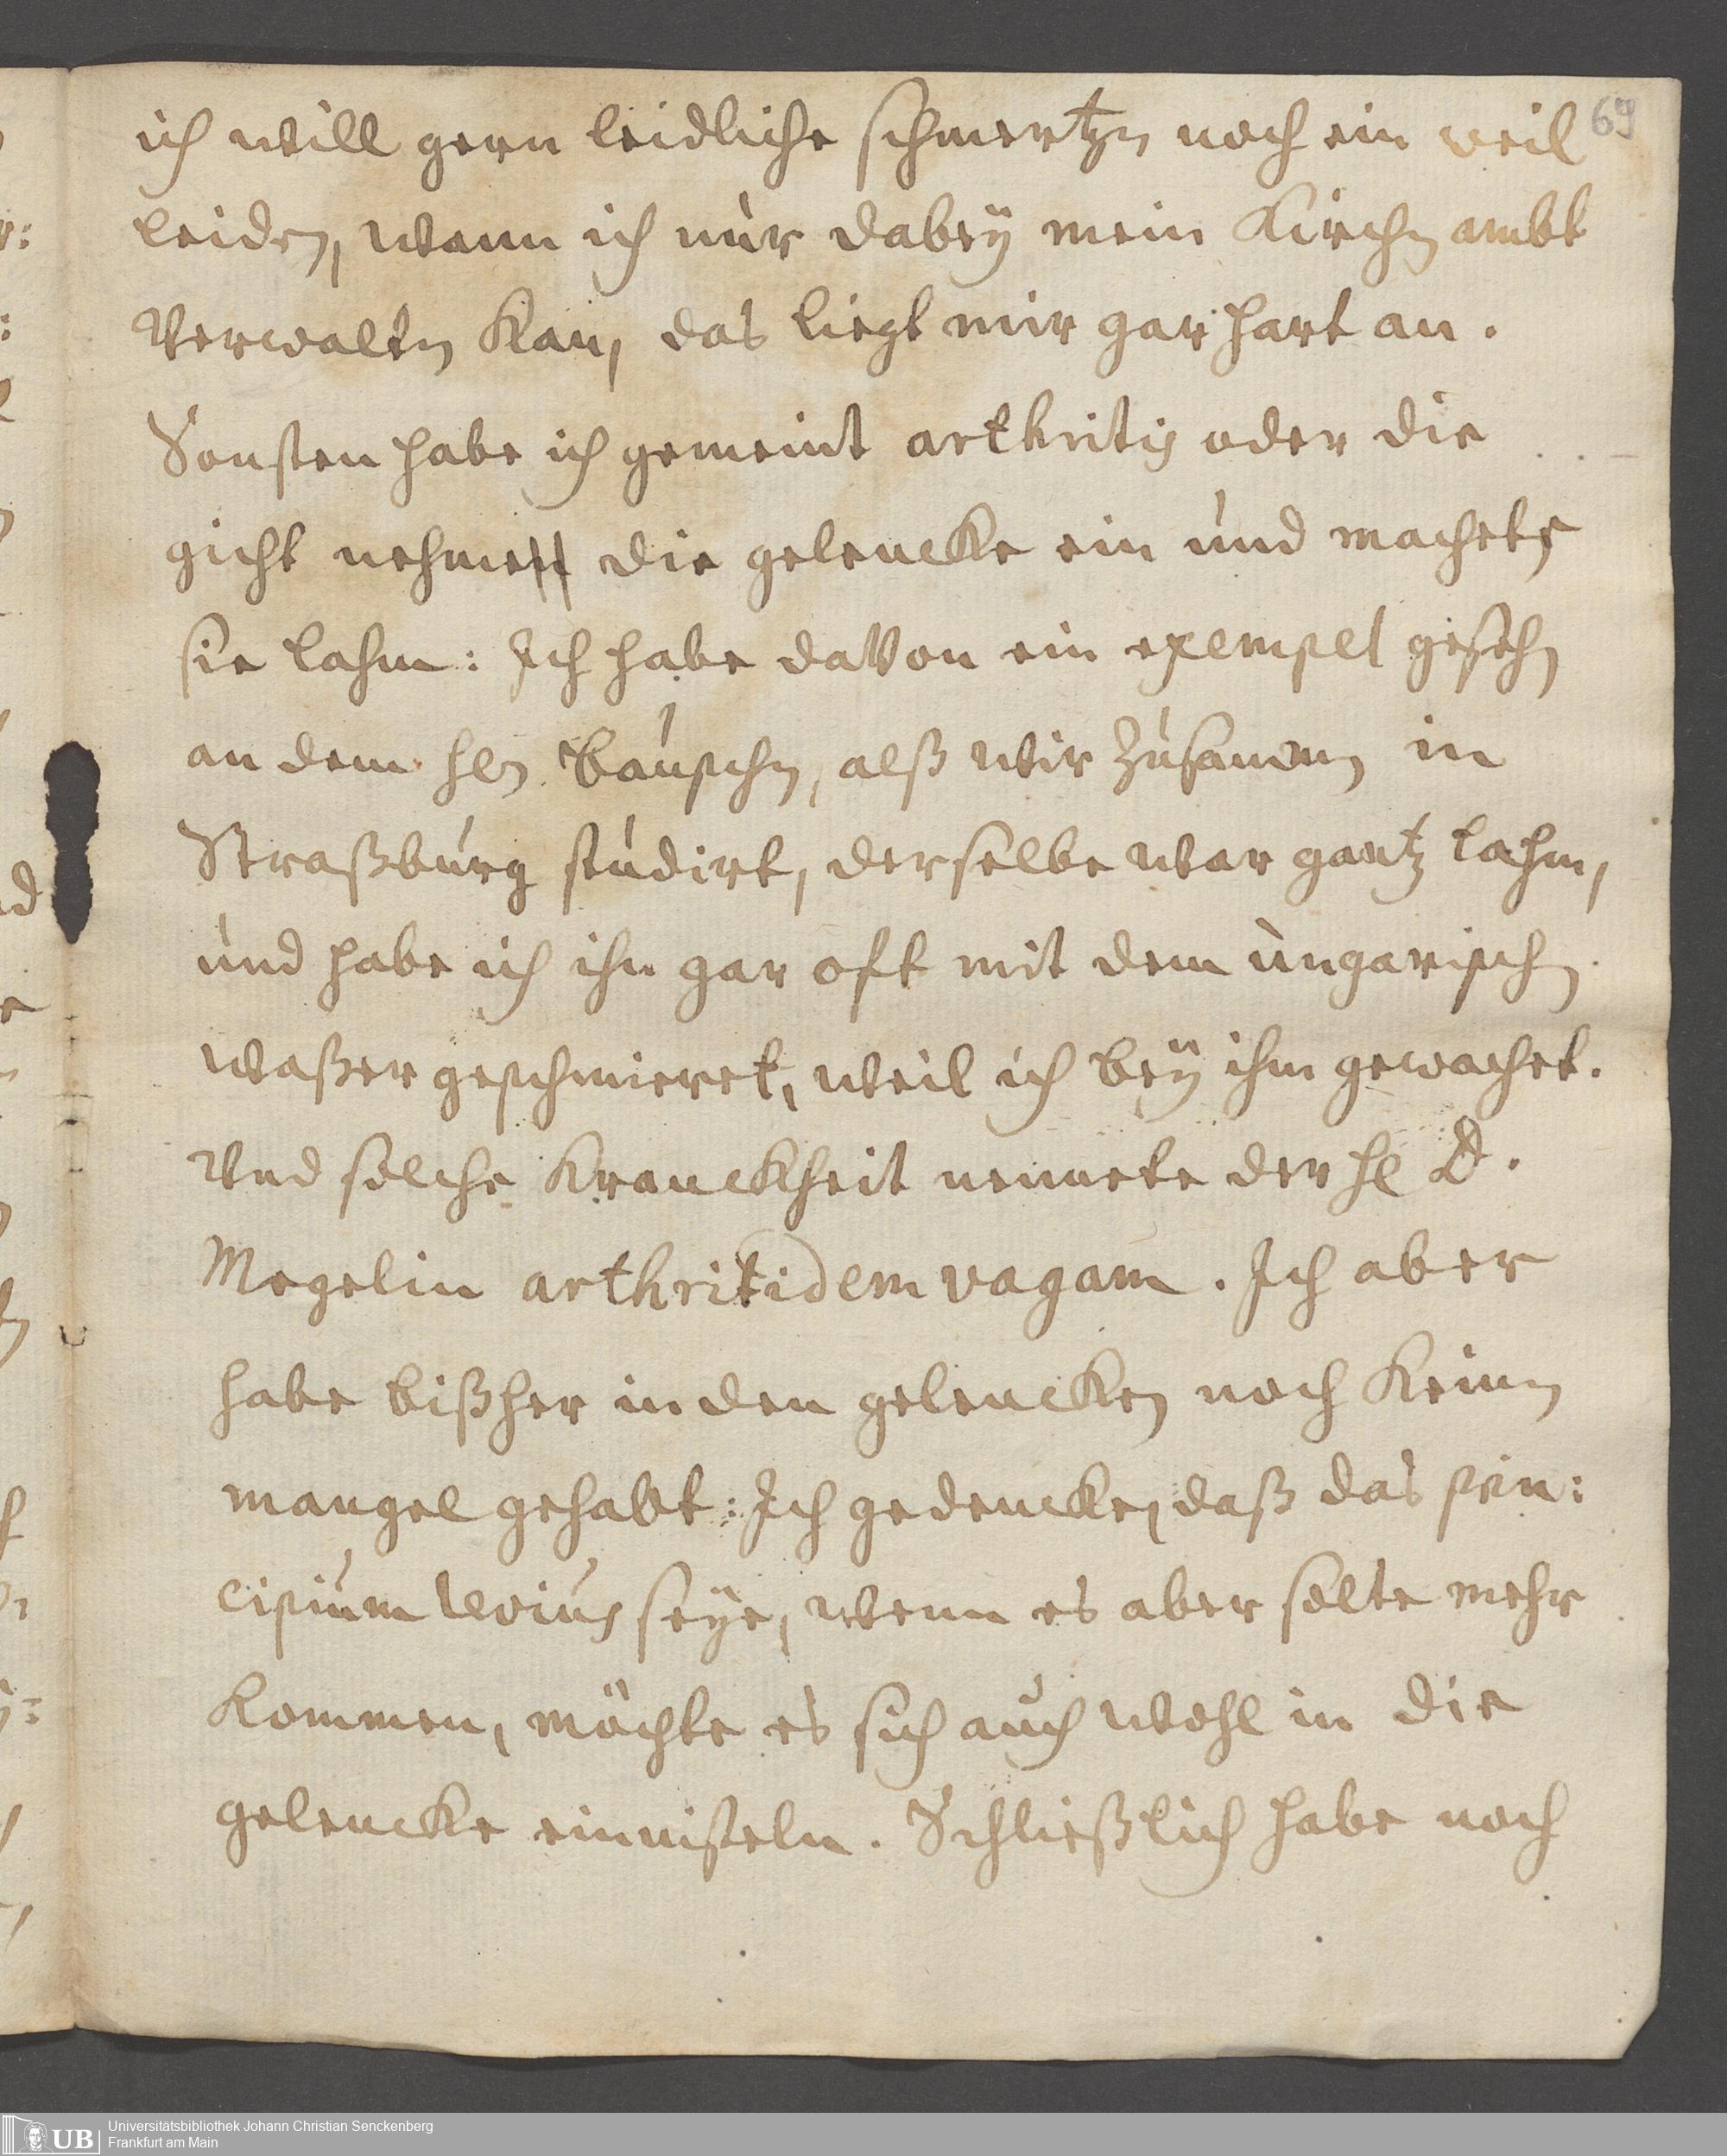 69
ich will gern leidliche schmertzen noch ein weil
leiden, wann ich nur dabey mein Kirchen ambt
Verwalten kan, das liegt mir gar hart an.
Sonsten habe ich gemeint arthritis oder die
gicht nehme die gelencke ein und mache
sie lahm: Ich habe daVon ein exempel gesehen
an dem hln Bauschen, alß wir zusamen in
Straßburg studirt, derselbe war gantz lahm,
und habe ich ihn gar oft mit dem ungarischen
waßer geschmieret, weil ich bey ihm gewachet.
Und solche Kranckheit nennete der hl D.
Megelin arthritidem vagam. Ich aber
habe bißher in den gelencken noch keinen
mangel gehabt: Ich gedencke, daß das prin:
cipium seye, wenn es aber solte mehr
kommen, möchte es sich auch wohl in die
gelencke einnisteln. Schließlich habe noch
UB
Universitätsbibliothek Johann Christian Senckenberg
Frankfurt am Main